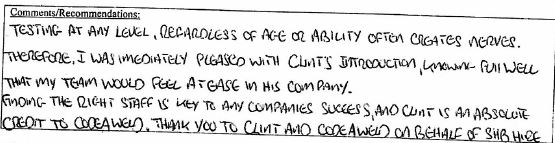 Comments/Recommendations:
TESTING AT ANY LEVEL, REGARDLESS OF AGE OR ABILITY OFTEN CREATES NERVES.
THEREFORE, I WAS IMEDIATELY PLEASED WITH CLINT'S INTRODUCTION, KNOWING FULL WELL
THAT MY TEAM WOULD FEEL AT EASE IN HIS COMPANY.
FINDING THE RIGHT STAFF IS KEY TO ANY COMPANIES SUCCESS, AND CLINT IS AN ABSOLUTE
CREDIT TO CODEAWELD. THANK YOU TO CLINT AND CODEAWELD ON BEHALF OF SHB HIRE